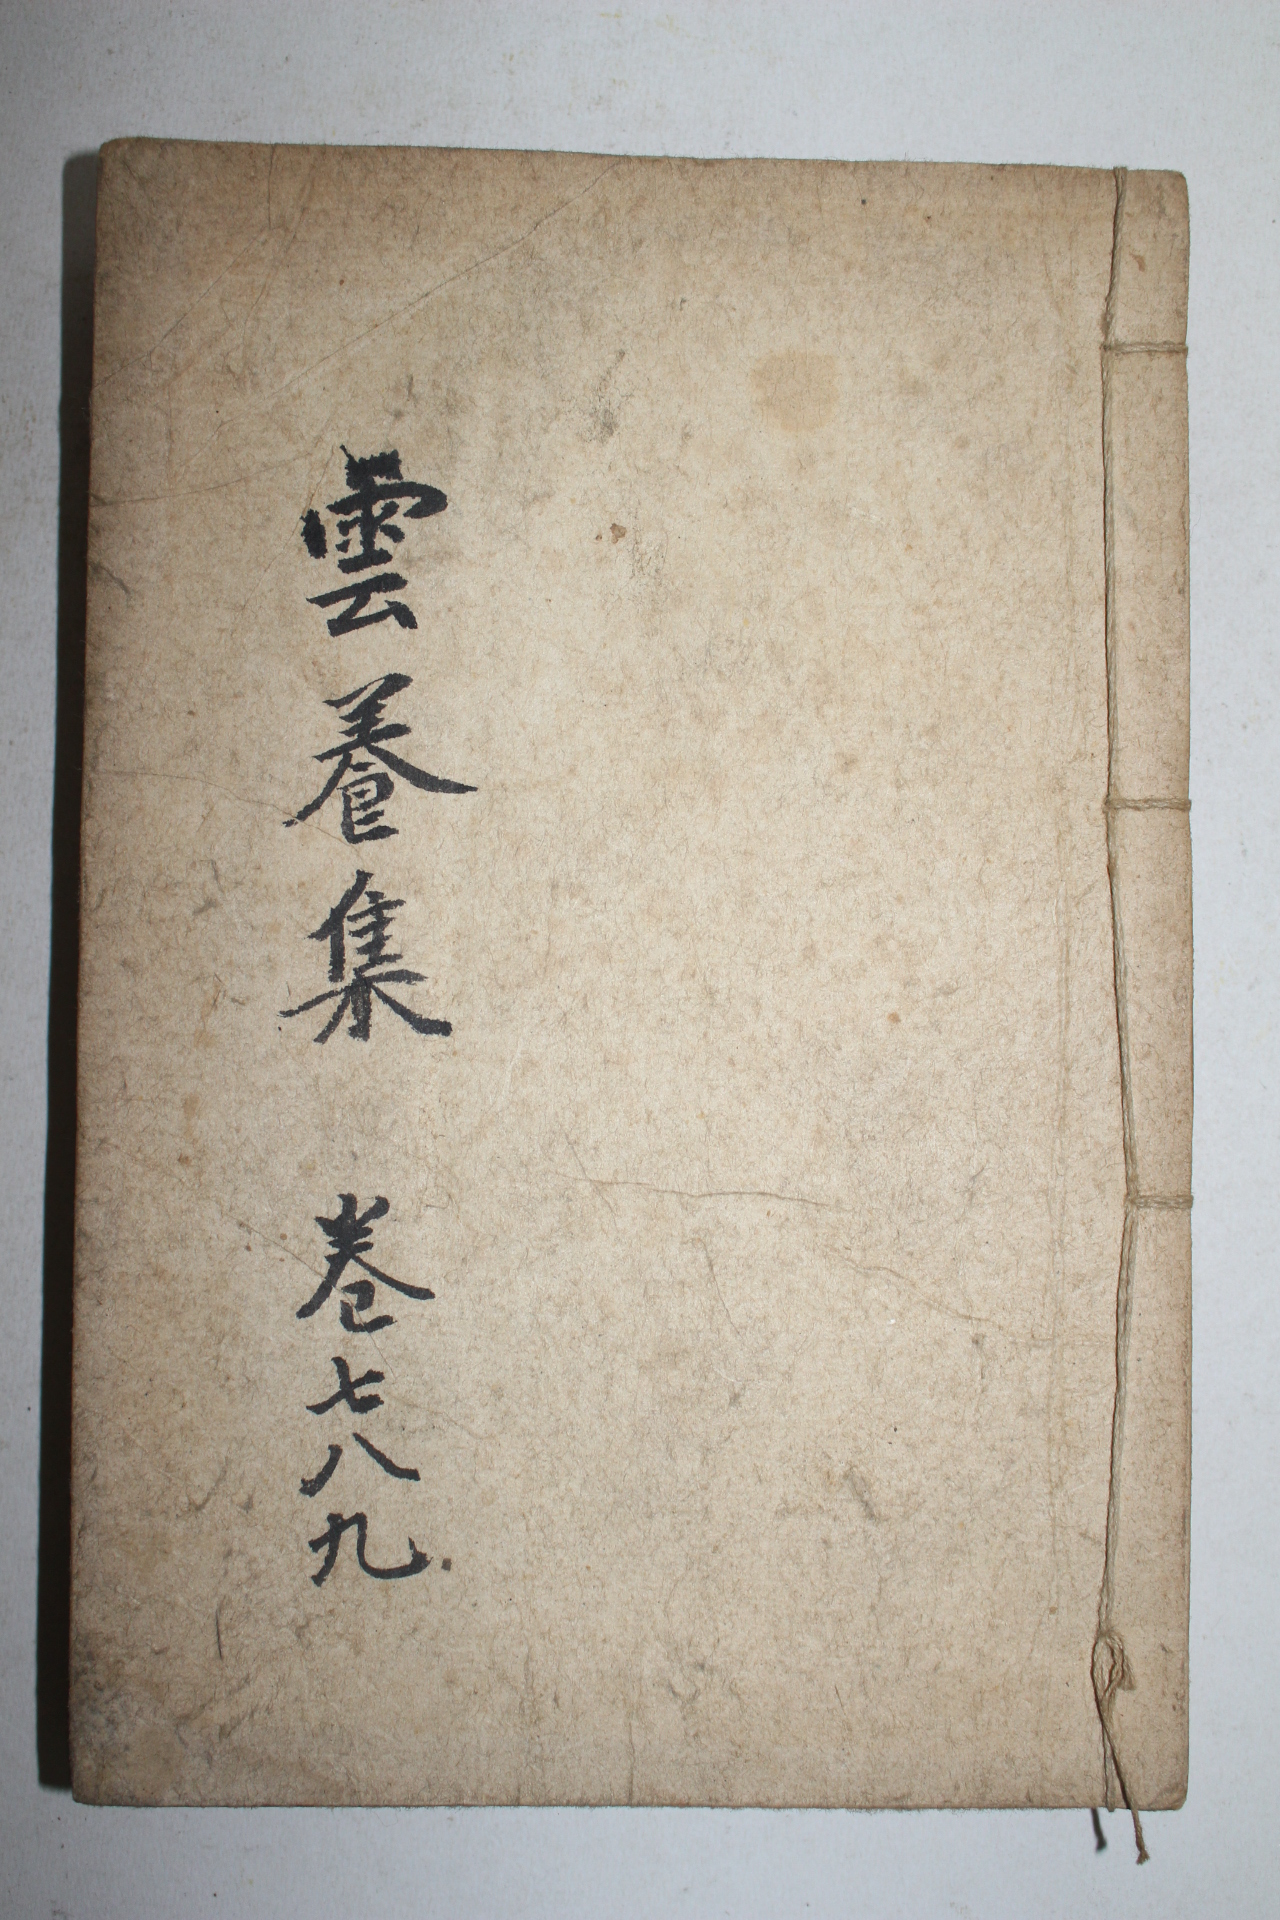 雲養集 卷七八九